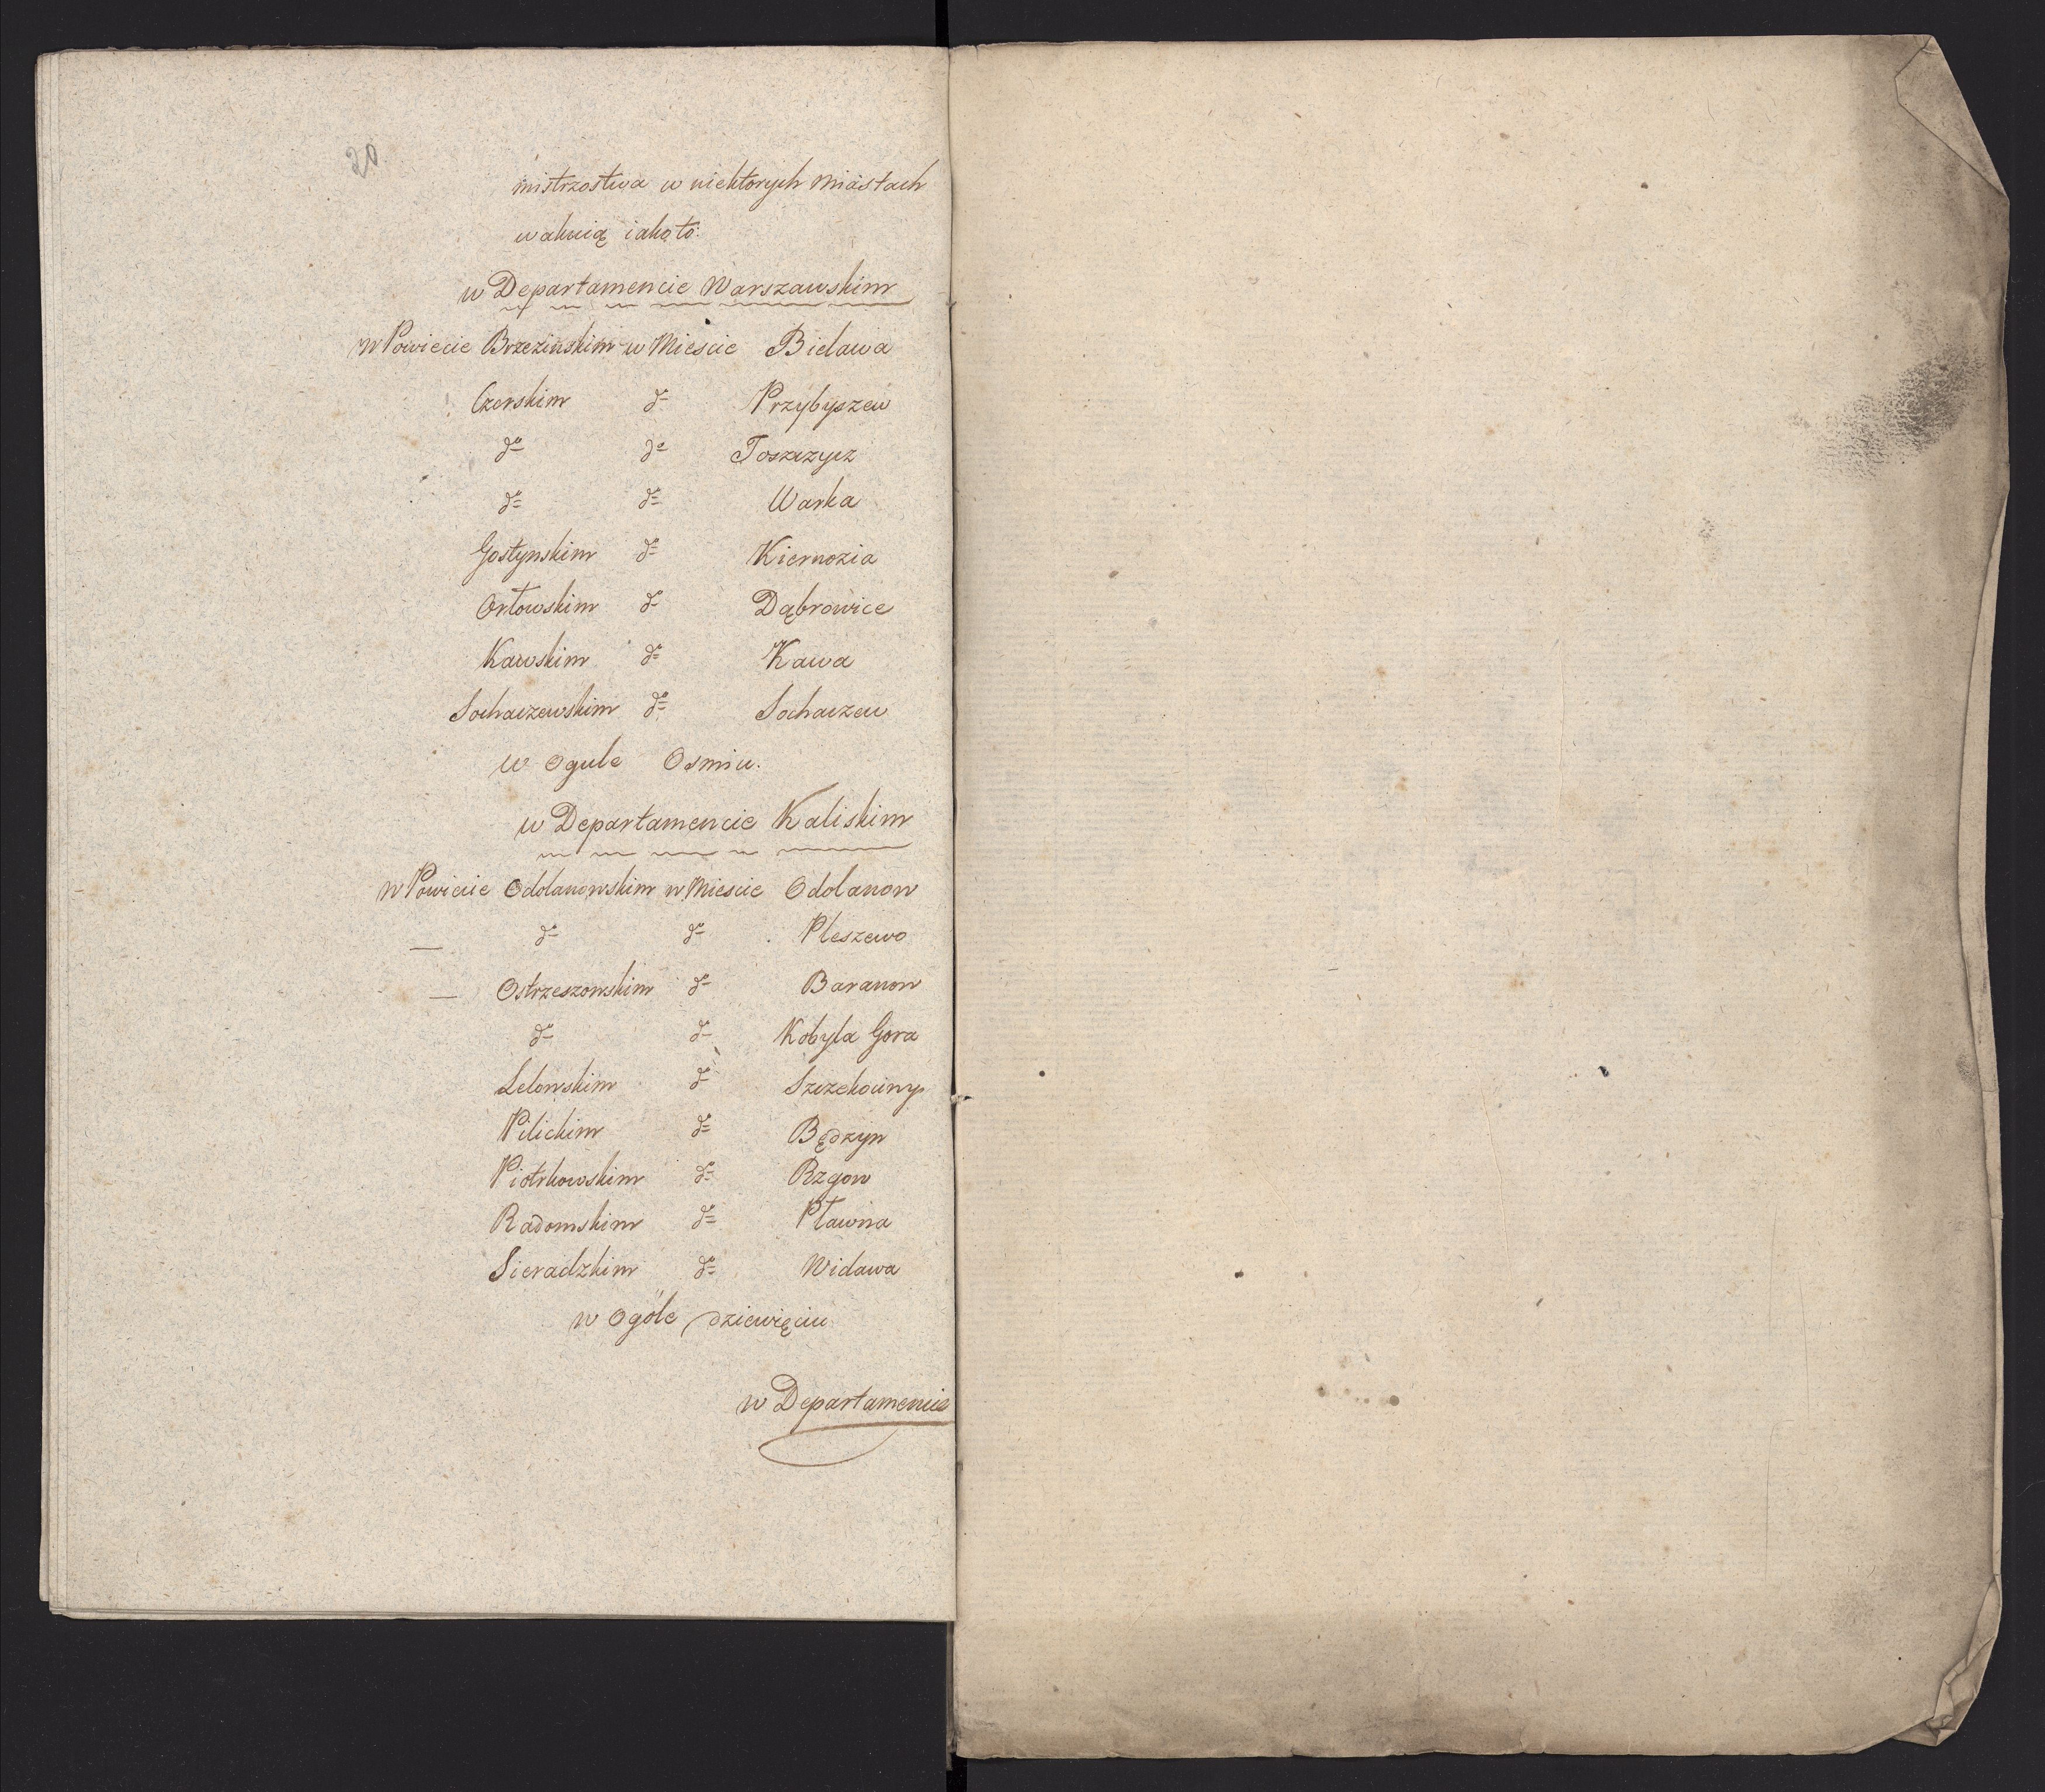 20
mistrzostwa w niektorych Miastach
wakuią iako to:
w Departamencie Warszawskim
w Powiecie Brzezinskim w Miescie Bielawa
Czerskim do Przybyszew
do do Toszczycz
do do Warka
Gostynskim do Kiernozia
Orłowskim do Dąbrowice
Rawskim do Rawa
Sochaczewskim do Sochaczew
w ogule Osmiu.
w Departamencie Kaliskim
w Powiecie Odolanowskim w Miescie Odolanow
— do do Pleszewo
— Ostrzeszowskim do Baranow
do do Kobyla Gora
Lelowskim do Szczekociny
Pilickim do Będzyn
Piotrkowskim do Rzgow
Radomskim do Pławna
Sieradzkim do Widawa
w Ogóle dziewięciu
w Departamencie